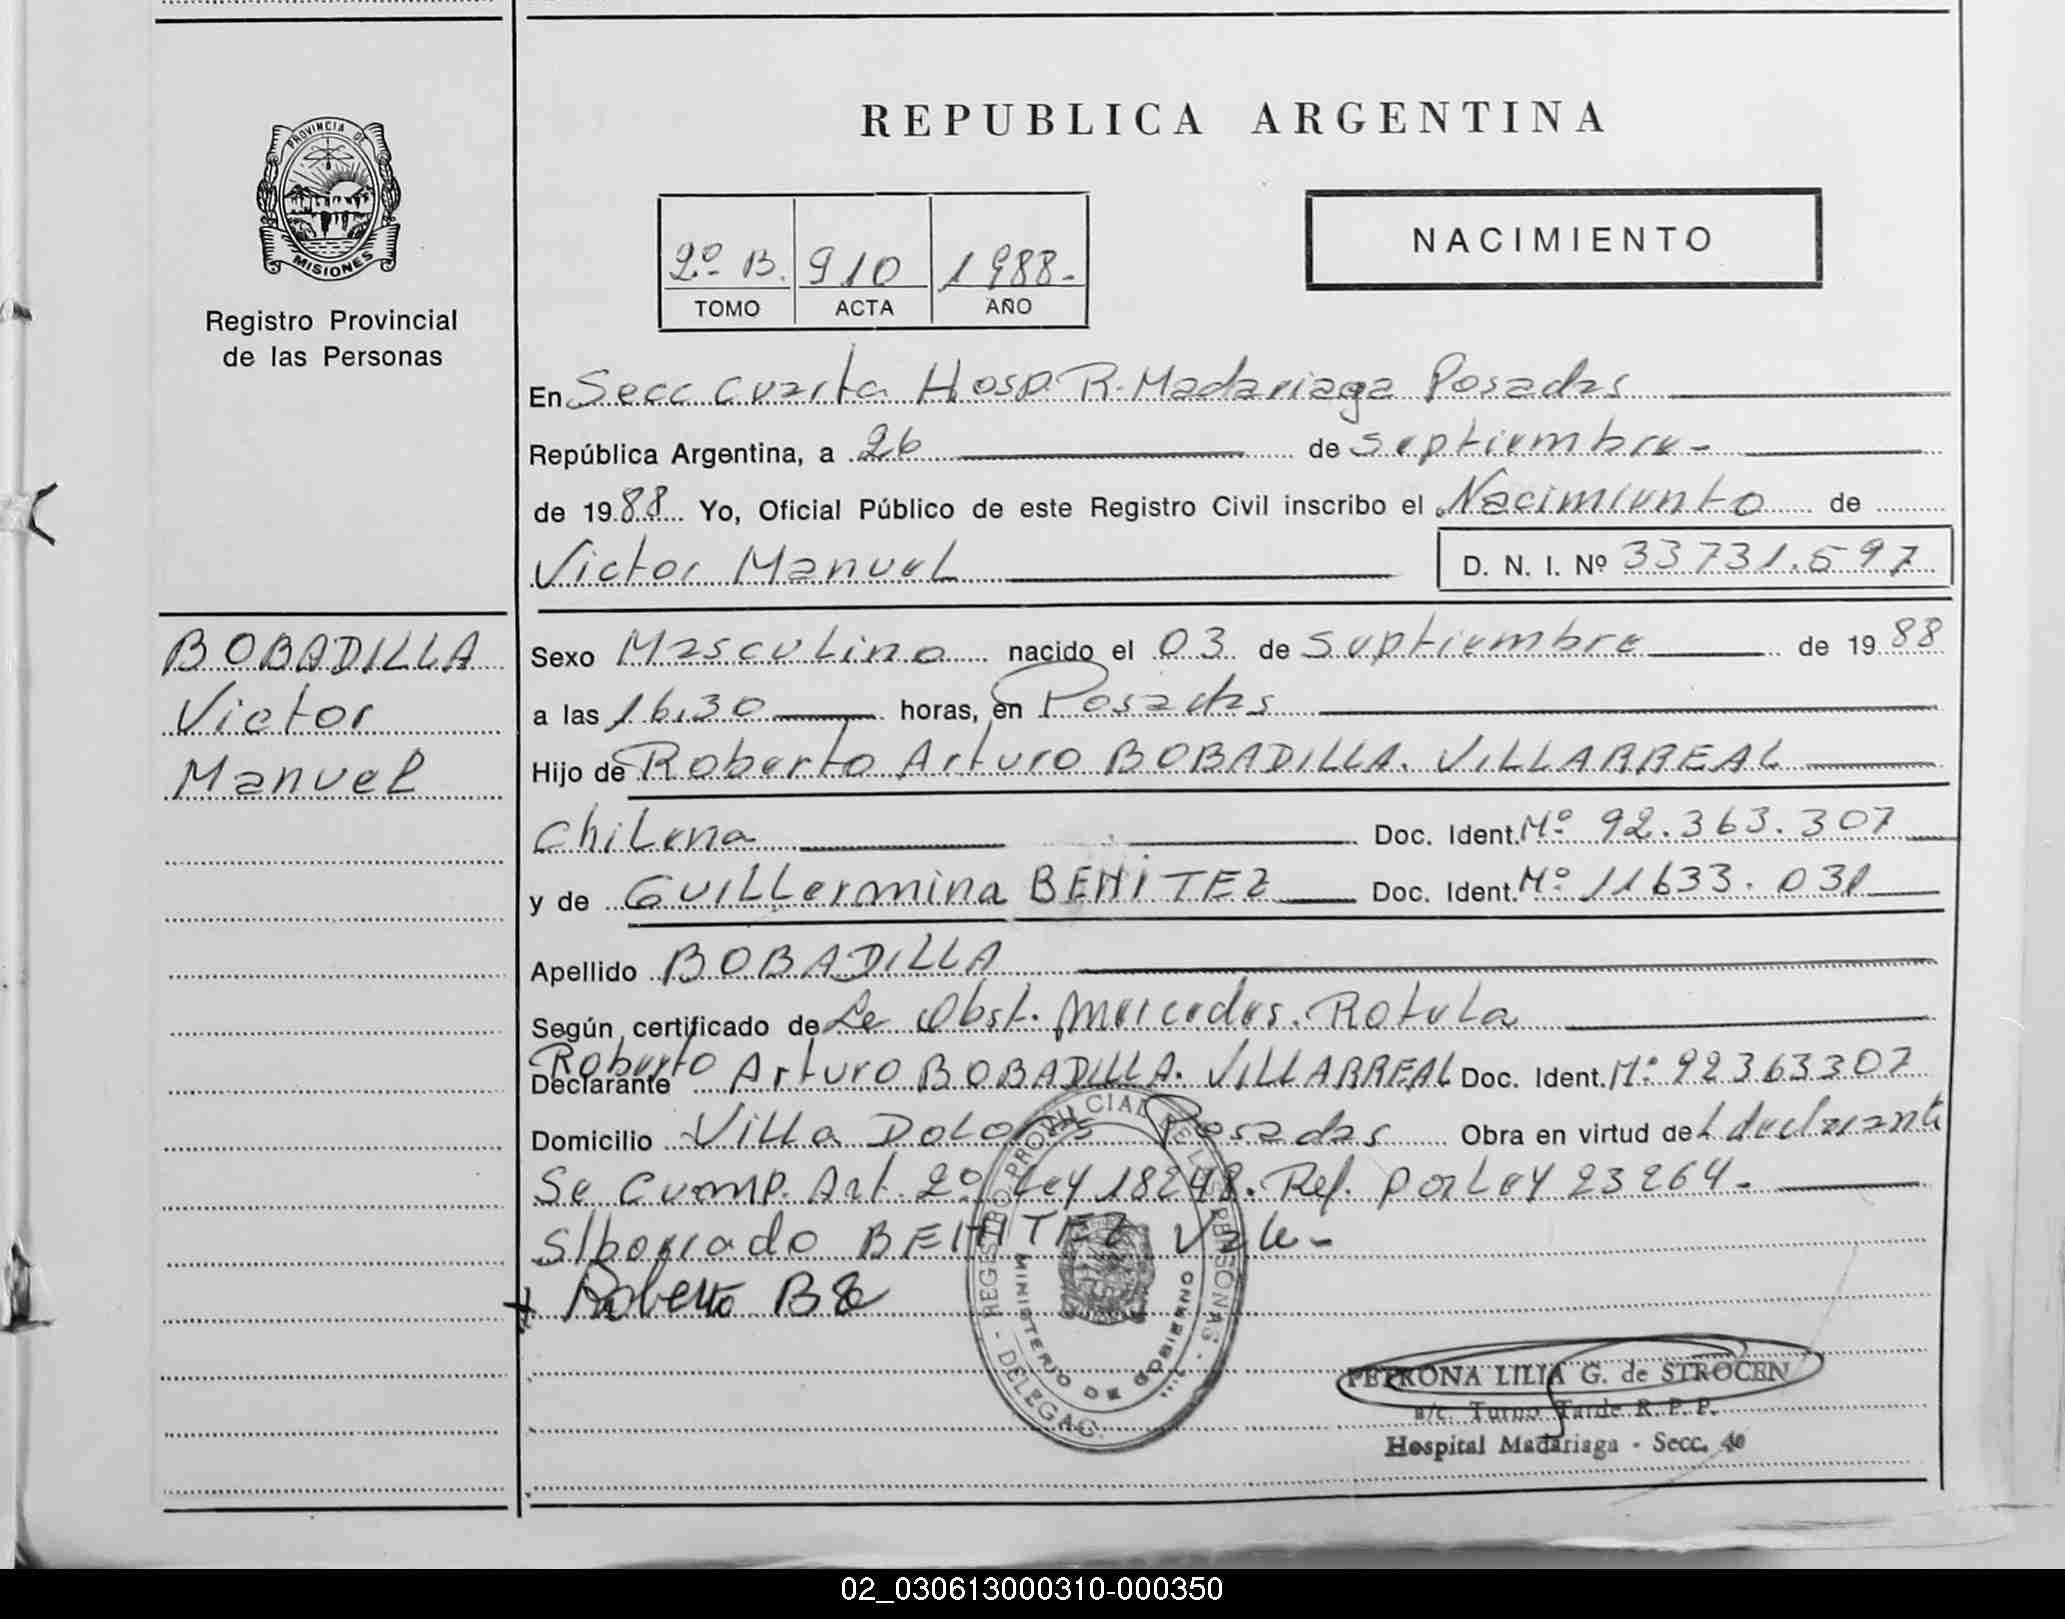 PROVINCIA DE
MISIONES
Registro Provincial
de las Personas
BOBADILLA
Victor
Manuel
REPUBLICA ARGENTINA
2º B. 910 1988-
TOMO ACTA AÑO
NACIMIENTO
En Secc cuarta Hosp. R. Madariaga Posadas
República Argentina, a 26 de septiembre-
de 1988 Yo, Oficial Público de este Registro Civil inscribo el Nacimiento de
Victor Manuel D. N. I. Nº 33731.597
Sexo Masculino nacido el 03 de Septiembre de 1988
a las 16.30 horas, en Posadas
Hijo de Roberto Arturo BOBADILLA. VILLARREAL
Chilena Doc. Ident. Nº 92.363.307
y de Guillermina BENITEZ Doc. Ident. Nº 11633.031
Apellido BOBADILLA
Según certificado de La Obst. Mercedes. Rotula
Declarante Roberto Arturo BOBADILLA. VILLARREAL Doc. Ident. Nº 92363307
Domicilio Villa Dolores Posadas Obra en virtud de l declarante
Se cump. Art. 2º Ley 18248. Ref. por Ley 23264.-
s/borrado BENITEZ Vale-
Roberto
REGISTRO PROVINCIAL DE LAS PERSONAS - DELEGAC.
MINISTERIO DE GOBIERNO
PETRONA LILIA G. de STROCEN
a/c. Turno Tarde R. P. P.
Hospital Madariaga - Secc. 4º
02_030613000310-000350